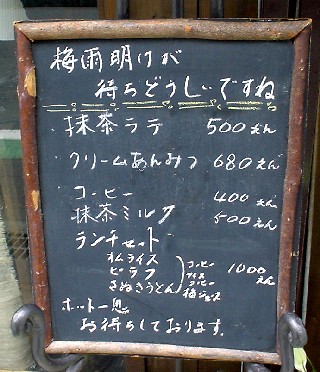 梅雨明けが
待ちどうしいですね
抹茶ラテ 500えん
クリームあんみつ 680えん
コーヒー 400えん
抹茶ミルク 500えん
ランチセット
オムライス コーヒー
ピラフ アイスコーヒー 1000えん
さぬきうどん 梅ジュース
ホット一息
お待ちしております。